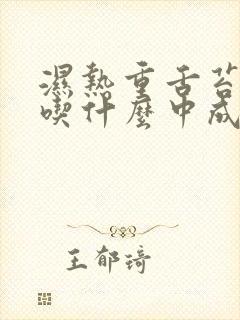 濕熱重舌苔
喫什麼中成
王郁琦